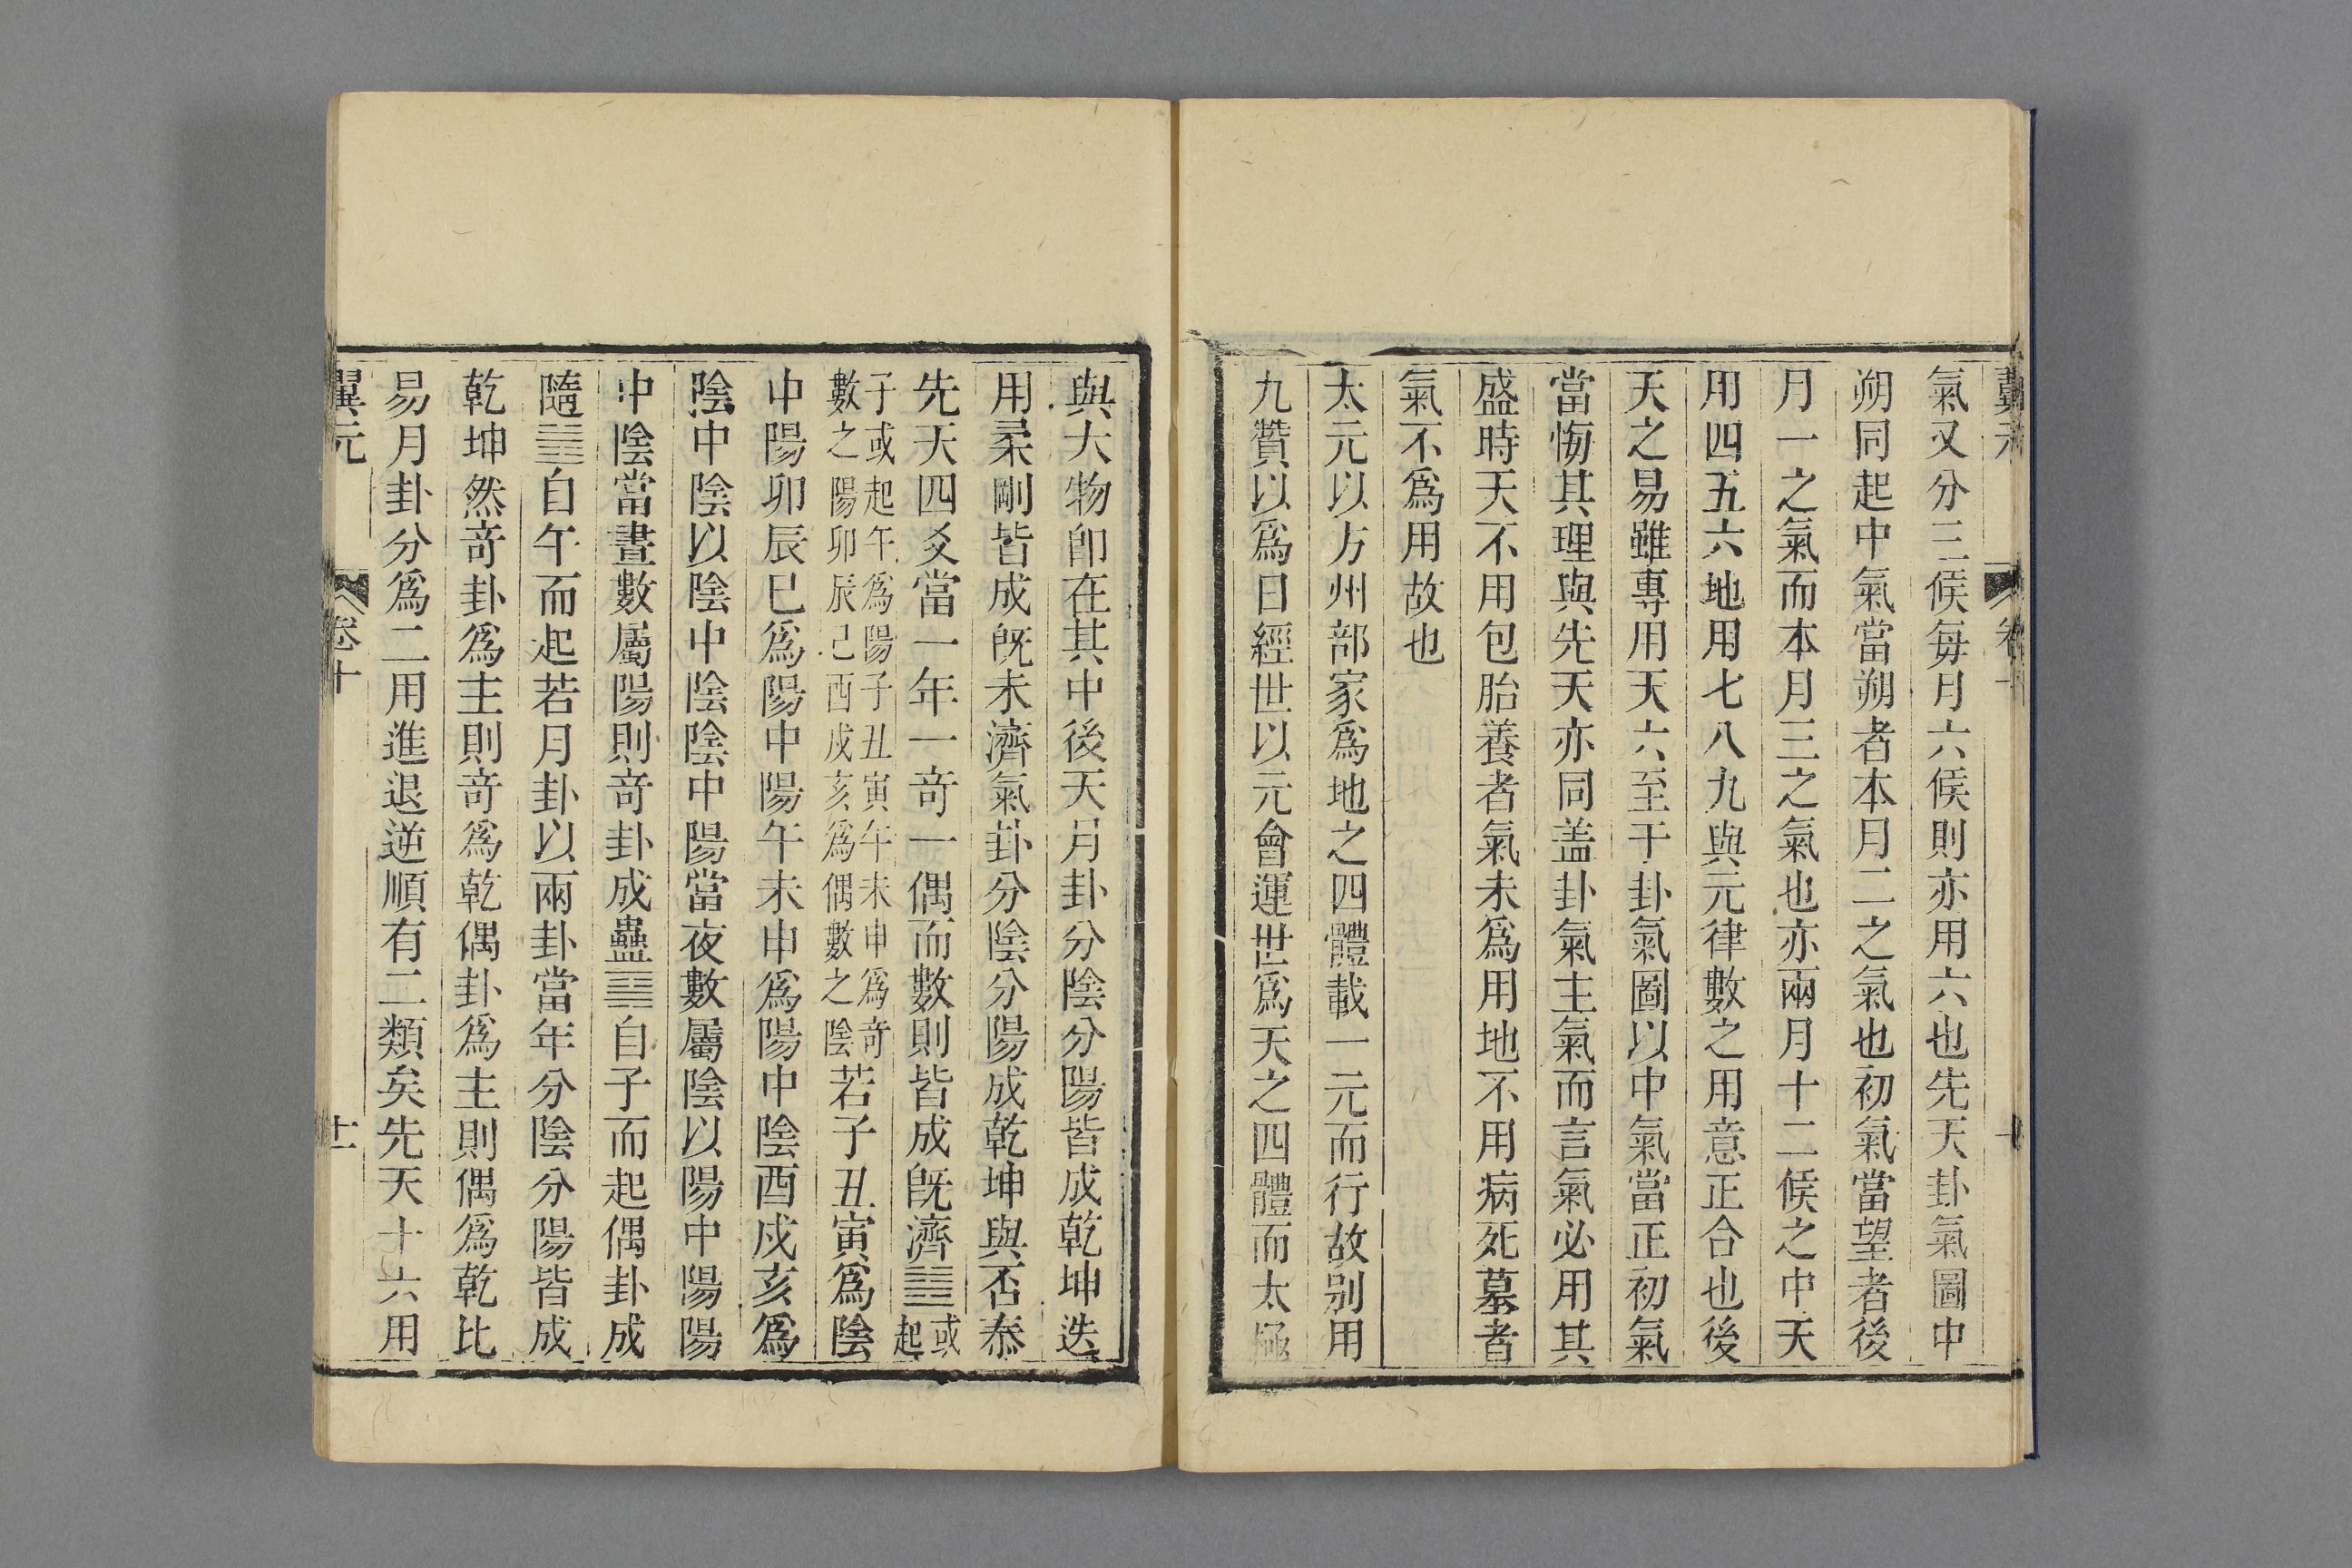 氣又分三候每月六候則亦用六也先天卦氣圖中
朔同起中氣當朔者本月二之氣也初氣當望者後
月一之氣而本月三之氣也亦兩月十二候之中天
用四五六地用七八九與元律數之用意正合也後
天之易雖專用天六至于卦氣圖以中氣當正初氣
當悔其理與先天亦同盖卦氣主氣而言氣必用其
盛時天不用包胎養者氣未爲用地不用病死墓者
氣不爲用故也
太元以方州部家爲地之四體載一元而行故别用
九贊以爲日經世以元會運世爲天之四體而太極
與大物卽在其中後天月卦分陰分陽皆成乾坤迭
用柔剛皆成旣未濟氣卦分陰分陽成乾坤與否泰
先天四爻當一年一奇一偶而數則皆成旣濟䷾或起
子或起午爲陽子丑寅午未申爲奇
數之陽卯辰巳酉戌亥爲偶數之陰若子丑寅爲陰
中陽卯辰巳爲陽中陽午未申爲陽中陰酉戌亥爲
陰中陰以陰中陰陰中陽當夜數屬陰以陽中陽陽
中陰當晝數屬陽則奇卦成蠱䷑自子而起偶卦成
隨䷐自午而起若月卦以兩卦當年分陰分陽皆成
乾坤然奇卦爲主則奇爲乾偶卦爲主則偶爲乾比
易月卦分爲二用進退逆順有二類矣先天十六用
翼元
卷十
十一